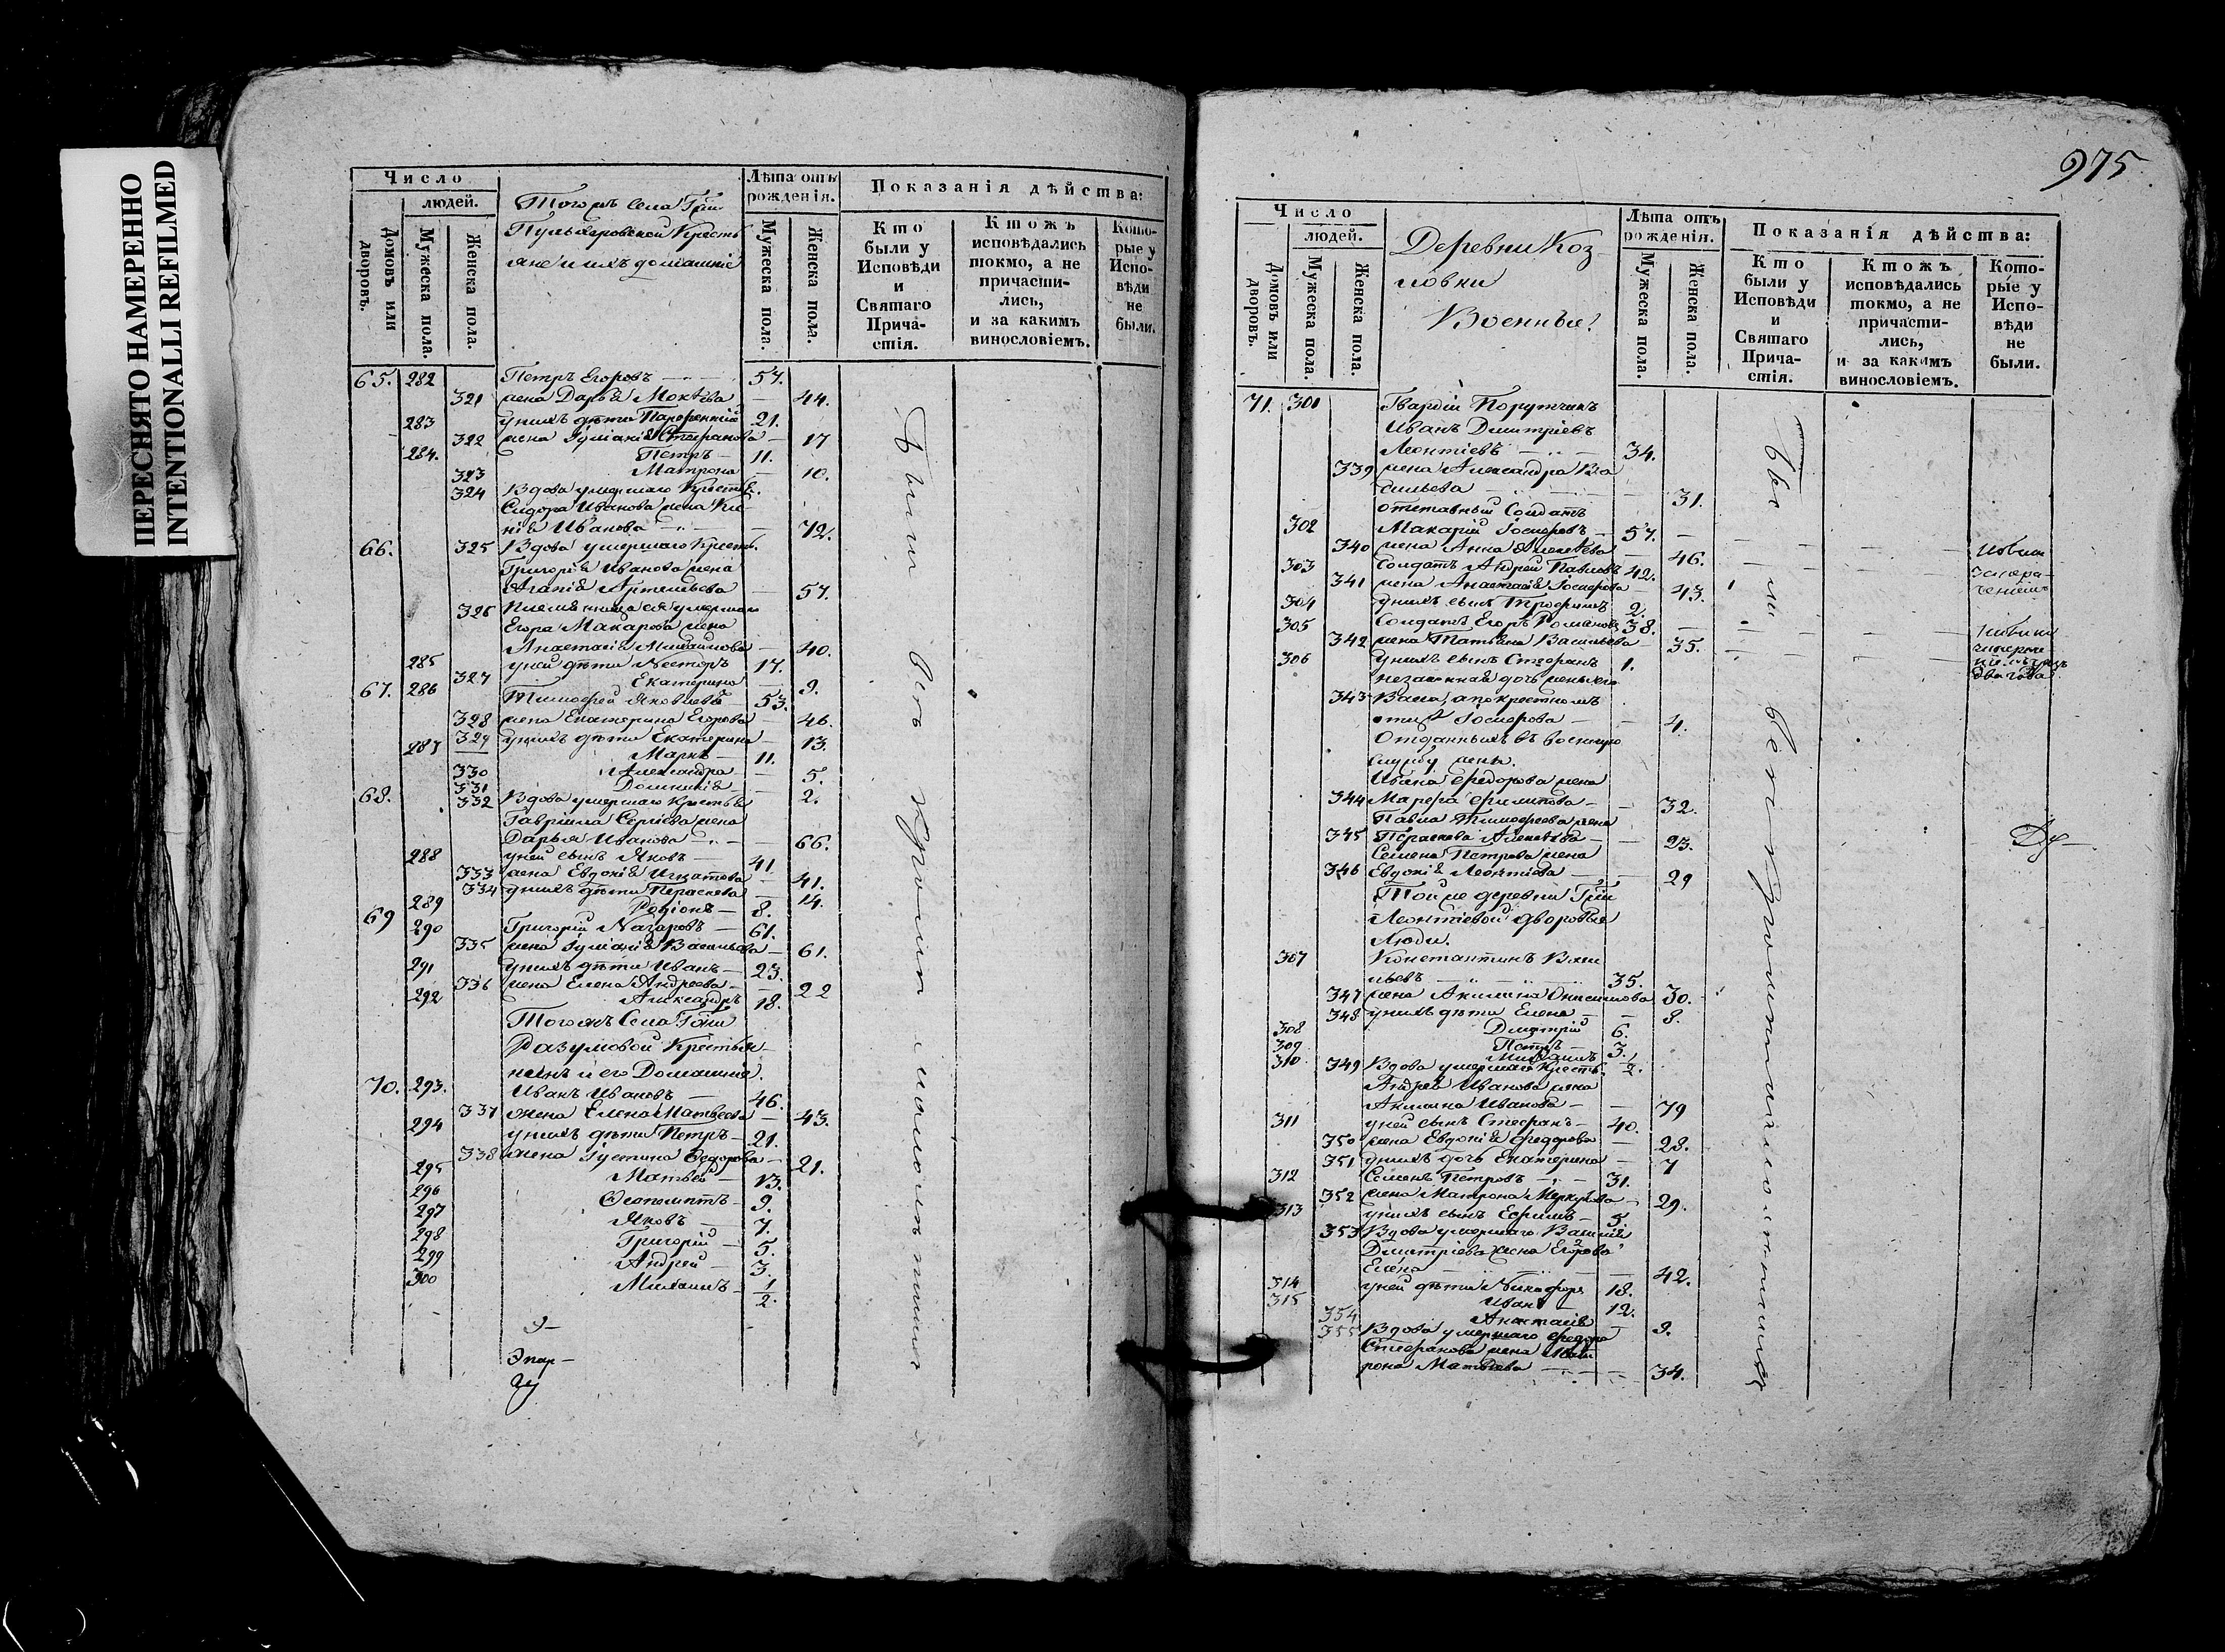 ПЕРЕСНЯТО НАМЕРЕННО
INTENTIONALLI REFILMED
Число
людей.
Домовъ или дворовъ.
Мужеска пола.
Женска пола.
Тогожъ села
Крестья
яне и ихъ домашніе
Лѣта отъ рожденія.
Мужеска пола.
Женска пола.
Показанія дѣйства:
Кто были у Исповѣди и Святаго Причастія.
Ктожъ исповѣдались токмо, а не причастились, и за какимъ винословіемъ.
Которые у Исповѣди не были.
65. 282 Петръ Егоровъ 57.
321 жена Дарья Мокѣева 44.
283 у нихъ дѣти Парфенній 21.
322 жена Іуліанія Стефанова 17
284. Петръ 11.
323 Матрона 10.
324 Вдова умершаго Крестья.
Сидора Иванова жена
Иванова 72.
66. 325 Вдова умершаго Крестья.
Григорія Иванова жена
Агапія Артемьева 57.
326 умершаго
Егора Макарова жена
Анастасія Михайлова 40.
285 у ней дѣти Несторъ 17.
327 Екатерина 9.
67. 286 Тимофей Яковлевъ 53.
328 жена Екатерина Егорова 46.
329 у нихъ дѣти Екатерина 13.
287 Маркъ 11.
330 Александра 5.
331 Домникія 2.
68. 332 Вдова умершаго Крестья
Гавріила Сергіева жена
Дарья Иванова 66.
288 у ней сынъ Яковъ 41
333 жена Евдокія Игнатова 41.
334 у нихъ дѣти Параскева 14.
289 Родіонъ 8.
69 290 Григорій Назаровъ 61.
335 жена Іуліанія Васильева 61.
291 у нихъ дѣти Иванъ 23.
336 жена Елена Андреева 22
292 Александръ 18.
Тогожъ Села Гжи
Разумовой Крестья-
нинъ и его Домашніе.
70. 293. Иванъ Ивановъ 46.
337 жена Елена Матвеева 43.
294 у нихъ дѣти Петръ 21.
338 жена Іустина Федорова 21.
295 Матвей 13.
296 Феопемптъ 9.
297 Яковъ 7.
298 Григорій 5.
299 Андрей 3.
300 Михаилъ 1/2.
Были
975
Число
людей.
Домовъ или дворовъ.
Мужеска пола.
Женска пола.
Деревни Коз-
ловки
Военные.
Лѣта отъ рожденія.
Мужеска пола.
Женска пола.
Показанія дѣйства:
Кто были у Исповѣди и Святаго Причастія.
Ктожъ исповѣдались токмо, а не причастились, и за какимъ винословіемъ.
Которые у Исповѣди не были.
71. 301 Гвардіи Порутчикъ
Иванъ Дмитріевъ
Леонтіевъ 34.
339 жена Александра Ва
сильева 31.
отставный Солдатъ
302 Макарій Іосифовъ 57.
340 жена Анна Алексѣева 46.
303 Солдатъ Андрей Павловъ 42.
341 жена Анастасія Іосифова 43.
304 у нихъ сынъ Трофимъ 2
305 Солдатъ Егоръ Романовъ 38.
342 жена Татьяна Васильева 35.
306 у нихъ сынъ Стефанъ 1.
незаконная дочь жены его
343 Васса, а по крестномъ
отцѣ Іосифова 4.
Отданныхъ въ военную
службу жены.
Ивана Федорова жена
344 Марфа Филипова 32.
Павла Тимофеева жена
345 Параскева Алексѣева 23.
Семена Петрова жена
346 Евдокія Леонтіева 29
Той же деревни Гжи
Леонтіевой дворовые
Люди.
307 Константинъ Васи
льевъ 35.
347 жена Акилина Онисимова 30.
348 у нихъ дѣти Елена 8.
308 Дмитрій 6.
309 Петръ 3.
310 Михаилъ 1/2.
349 Вдова умершаго Крестья.
Андрея Иванова жена
Акилина Иванова 79
311 у ней сынъ Стефанъ 40.
350 жена Евдокія Федорова 28.
351 у нихъ дочь Екатерина 7
312 Семенъ Петровъ 31.
352 жена Матрона Меркурова 29.
313 у нихъ сынъ Ефимъ 5.
353 Вдова умершаго Василія
Дмитріева жена Егорова
Елена 42.
314 у ней дѣти Никифоръ 18.
315 Иванъ 12.
354 Анастасія 9.
355 Вдова умершаго Федора
Стефанова жена Мат
рона Матвеева 34.